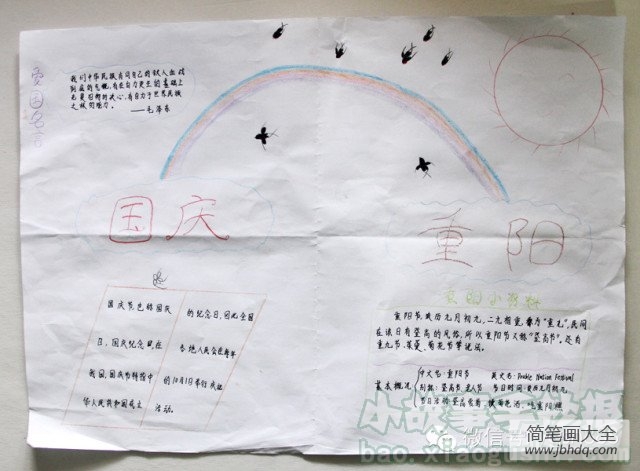 爱国名言
我们中华民族有同自己的敌人血战
到底的气概,有在自力更生的基础上
光复旧物的决心,有自立于世界民族
之林的能力。
——毛泽东
国庆
重阳
国庆节也称国庆
日、国庆纪念日,在
我国,国庆节特指中
华人民共和国成立
的纪念日,因此全国
各地人民会在每年
的10月1日举行庆祝
活动。
重阳节,农历九月初九,二九相重,称为"重九",民间
在该日有登高的风俗,所以重阳节又称"登高节"。还有
重九节、茱萸、菊花节等说法。
基本概况
中文名:重阳节
英文名:Double Nation Festival
别称:登高节、老人节
节日时间:农历九月初九
节日活动:登高赏菊、
吃重阳糕
微信
简笔画大全
www.jbhdq.com